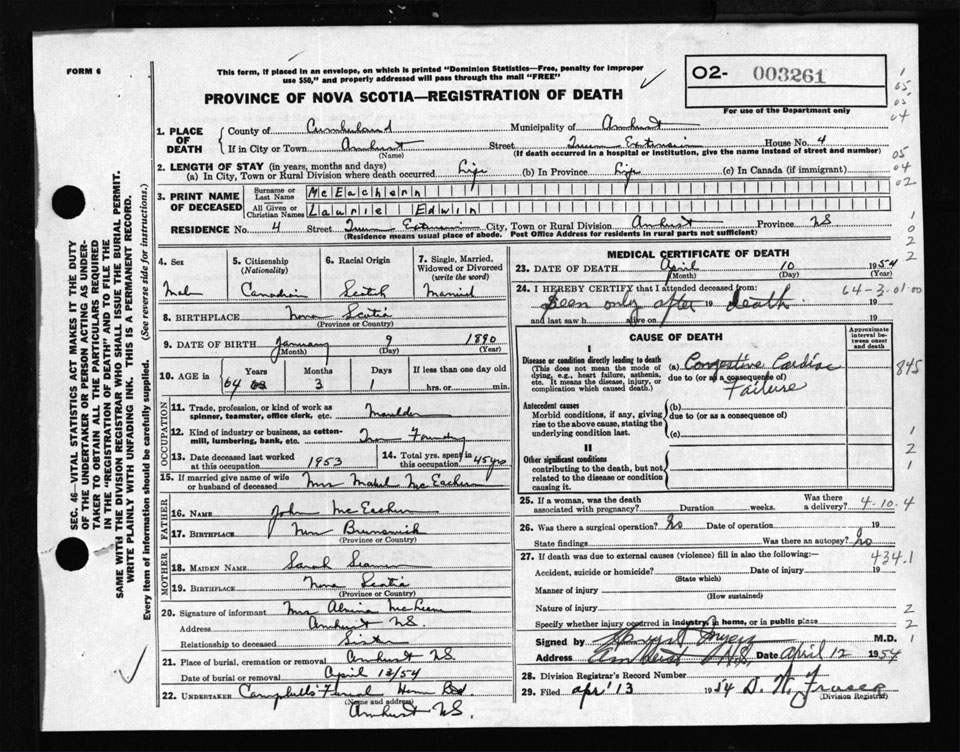 FORM 6
This form, if placed in an envelope, on which is printed "Dominion Statistics—Free, penalty for improper
use $50," and properly addressed will pass through the mail "FREE"
O2- 003261
For use of the Department only
PROVINCE OF NOVA SCOTIA—REGISTRATION OF DEATH
1. PLACE OF DEATH
County of Cumberland Municipality of Amherst
If in City or Town Amherst Street Extension House No. 4
(Name) (If death occurred in a hospital or institution, give the name instead of street and number)
2. LENGTH OF STAY (in years, months and days)
(a) In City, Town or Rural Division where death occurred Life (b) In Province Life (c) In Canada (if immigrant)
3. PRINT NAME OF DECEASED
Surname or Last Name McEachern
All Given or Christian Names Laurie Edwin
RESIDENCE No. 4 Street Extension City, Town or Rural Division Amherst Province NS
(Residence means usual place of abode. Post Office Address for residents in rural parts not sufficient)
4. Sex
Male
5. Citizenship (Nationality)
Canadian
6. Racial Origin
Scotch
7. Single, Married, Widowed or Divorced (write the word)
Married
8. BIRTHPLACE Nova Scotia
(Province or Country)
9. DATE OF BIRTH January 9 1890
(Month) (Day) (Year)
10. AGE in Years Months Days If less than one day old
64 3 1 hrs. or min.
OCCUPATION
11. Trade, profession, or kind of work as spinner, teamster, office clerk, etc. Moulder
12. Kind of industry or business, as cotton-mill, lumbering, bank, etc. Iron Foundry
13. Date deceased last worked at this occupation 1953
14. Total yrs. spent in this occupation 45 yrs
15. If married give name of wife or husband of deceased Mrs Mabel McEachern
FATHER
16. NAME John McEachern
17. BIRTHPLACE New Brunswick
(Province or Country)
MOTHER
18. MAIDEN NAME Sarah
19. BIRTHPLACE Nova Scotia
(Province or Country)
20. Signature of informant Mrs Almina
Address Amherst NS.
Relationship to deceased Sister
21. Place of burial, cremation or removal Amherst NS.
Date of burial or removal April 13/54
22. UNDERTAKER Campbells Funeral Home
(Name and address)
Amherst NS.
MEDICAL CERTIFICATE OF DEATH
23. DATE OF DEATH April 10 1954
(Month) (Day) (Year)
24. I HEREBY CERTIFY that I attended deceased from: 64-3.01.00
Seen only after 19 death 19
and last saw h alive on 19
CAUSE OF DEATH
Approximate interval between onset and death
I
Disease or condition directly leading to death
(This does not mean the mode of dying, e.g., heart failure, asthenia, etc. It means the disease, injury, or complication which caused death.)
(a) Congestive Cardiac
due to (or as a consequence of)
Failure
Antecedent causes
Morbid conditions, if any, giving rise to the above cause, stating the underlying condition last.
(b)
due to (or as a consequence of)
(c)
II
Other significant conditions
contributing to the death, but not related to the disease or condition causing it.
25. If a woman, was the death associated with pregnancy? Duration weeks. Was there a delivery? 4-10.4
26. Was there a surgical operation? No Date of operation 19
State findings Was there an autopsy? No
27. If death was due to external causes (violence) fill in also the following: 434.1
Accident, suicide or homicide? Date of injury 19
(State which)
Manner of injury
(How sustained)
Nature of injury
Specify whether injury occurred in industry, in home, or in public place
Signed by M.D.
Address Amherst N.S. Date April 12 1954
28. Division Registrar's Record Number
29. Filed Apr' 13 1954 D. W. Fraser
(Division Registrar)
SEC. 46—VITAL STATISTICS ACT MAKES IT THE DUTY
OF THE UNDERTAKER OR PERSON ACTING AS UNDER-
TAKER TO OBTAIN ALL THE PARTICULARS REQUIRED
IN THE "REGISTRATION OF DEATH" AND TO FILE THE
SAME WITH THE DIVISION REGISTRAR WHO SHALL ISSUE THE BURIAL PERMIT.
WRITE PLAINLY WITH UNFADING INK. THIS IS A PERMANENT RECORD.
Every item of information should be carefully supplied. (See reverse side for instructions.)
1
05
04
05
04
02
1
0
2
2
845
1
2
1
2
2
1